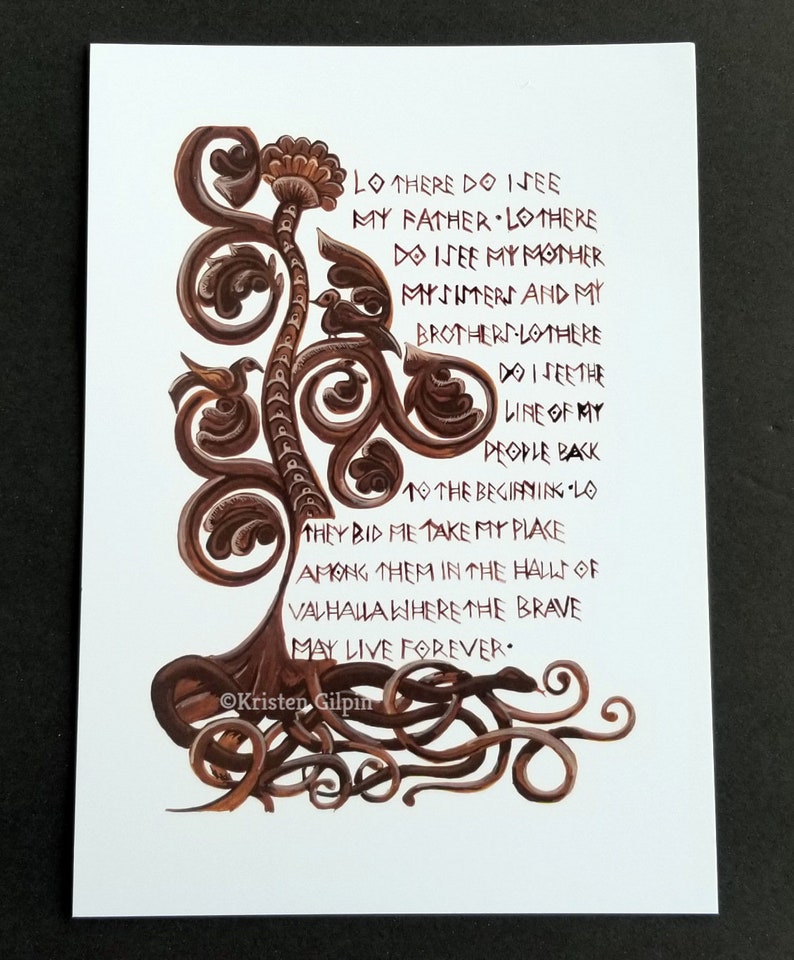 LO THERE DO I SEE
MY FATHER · LO THERE
DO I SEE MY MOTHER
MY SISTERS AND MY
BROTHERS · LO THERE
DO I SEE THE
LINE OF MY
PEOPLE BACK
TO THE BEGINNING · LO
THEY BID ME TAKE MY PLACE
AMONG THEM IN THE HALLS OF
VALHALLA WHERE THE BRAVE
MAY LIVE FOREVER ·
©Kristen Gilpin